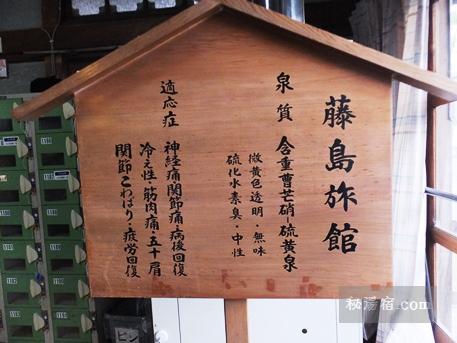 藤島旅館
泉質 含重曹芒硝-硫黄泉
微黄色透明・無味
硫化水素臭・中性
適応症 神経痛関節痛病後回復
冷え性 筋肉痛 五十肩
関節こわばり・疲労回復
秘湯宿.com
ビン